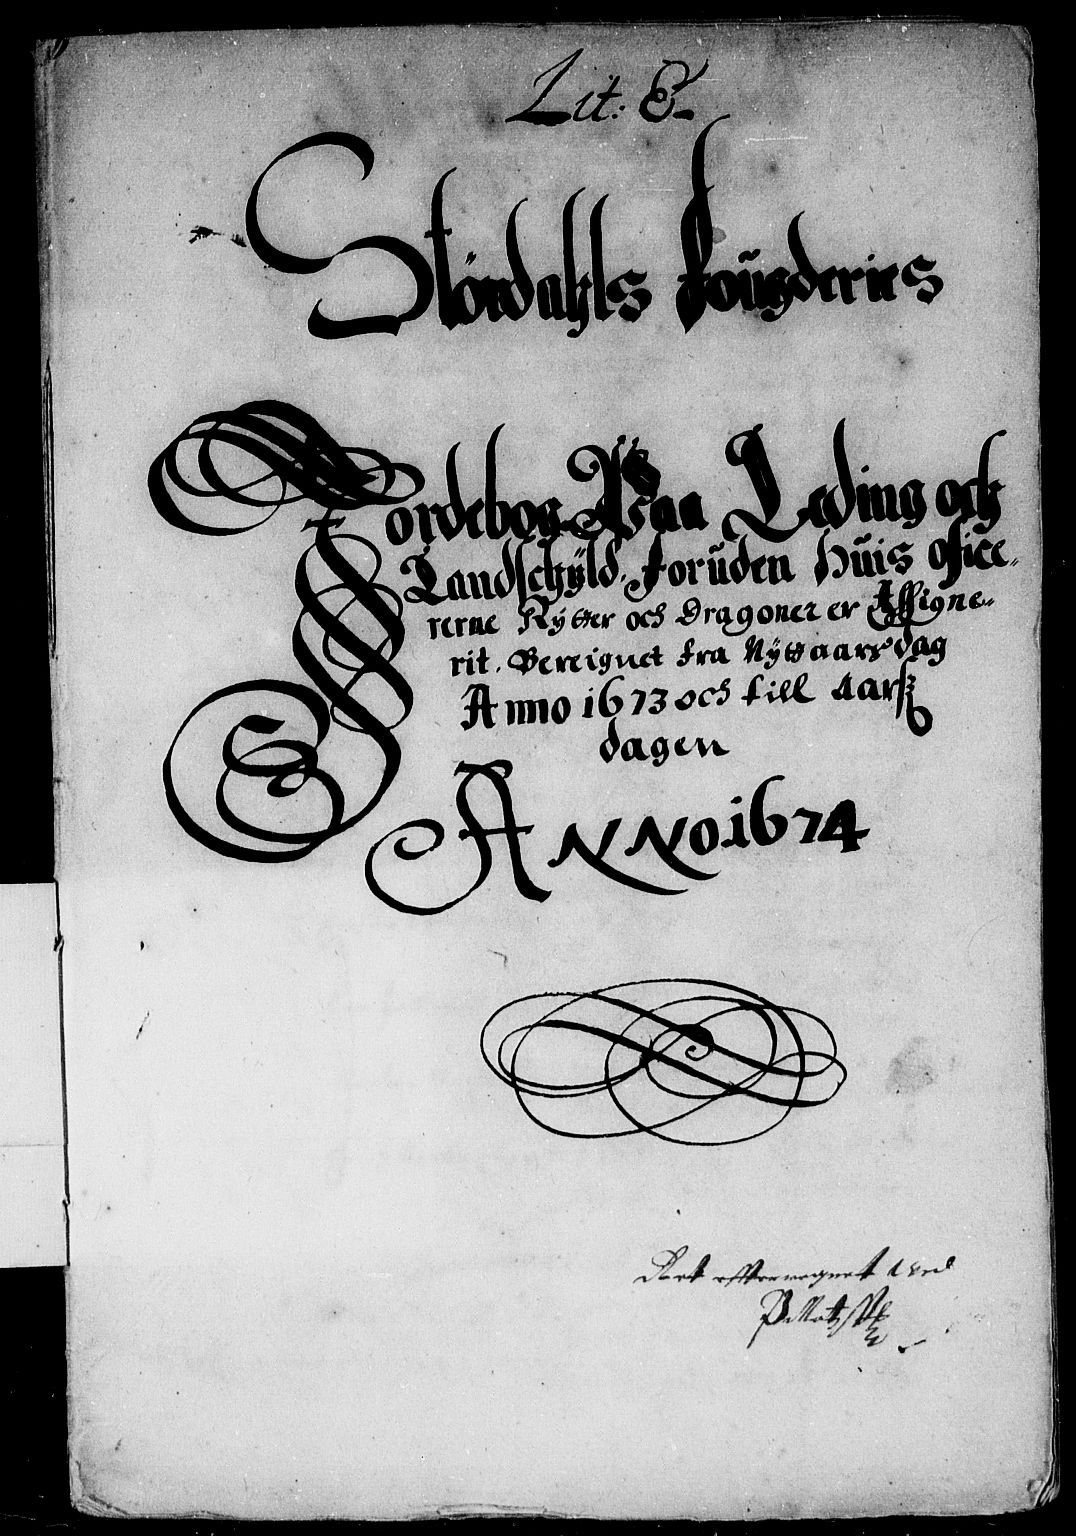 Lit: E
Størdahls fougderies
Jordebog Paa Leding och
Landschyld. foruden huis ofice-
rerne Rytter och Dragoner er Assigne-
rit. Bereignet fra Nyttaarsdag
Anno 1673 och till aarsz
dagen
Anno. 1674